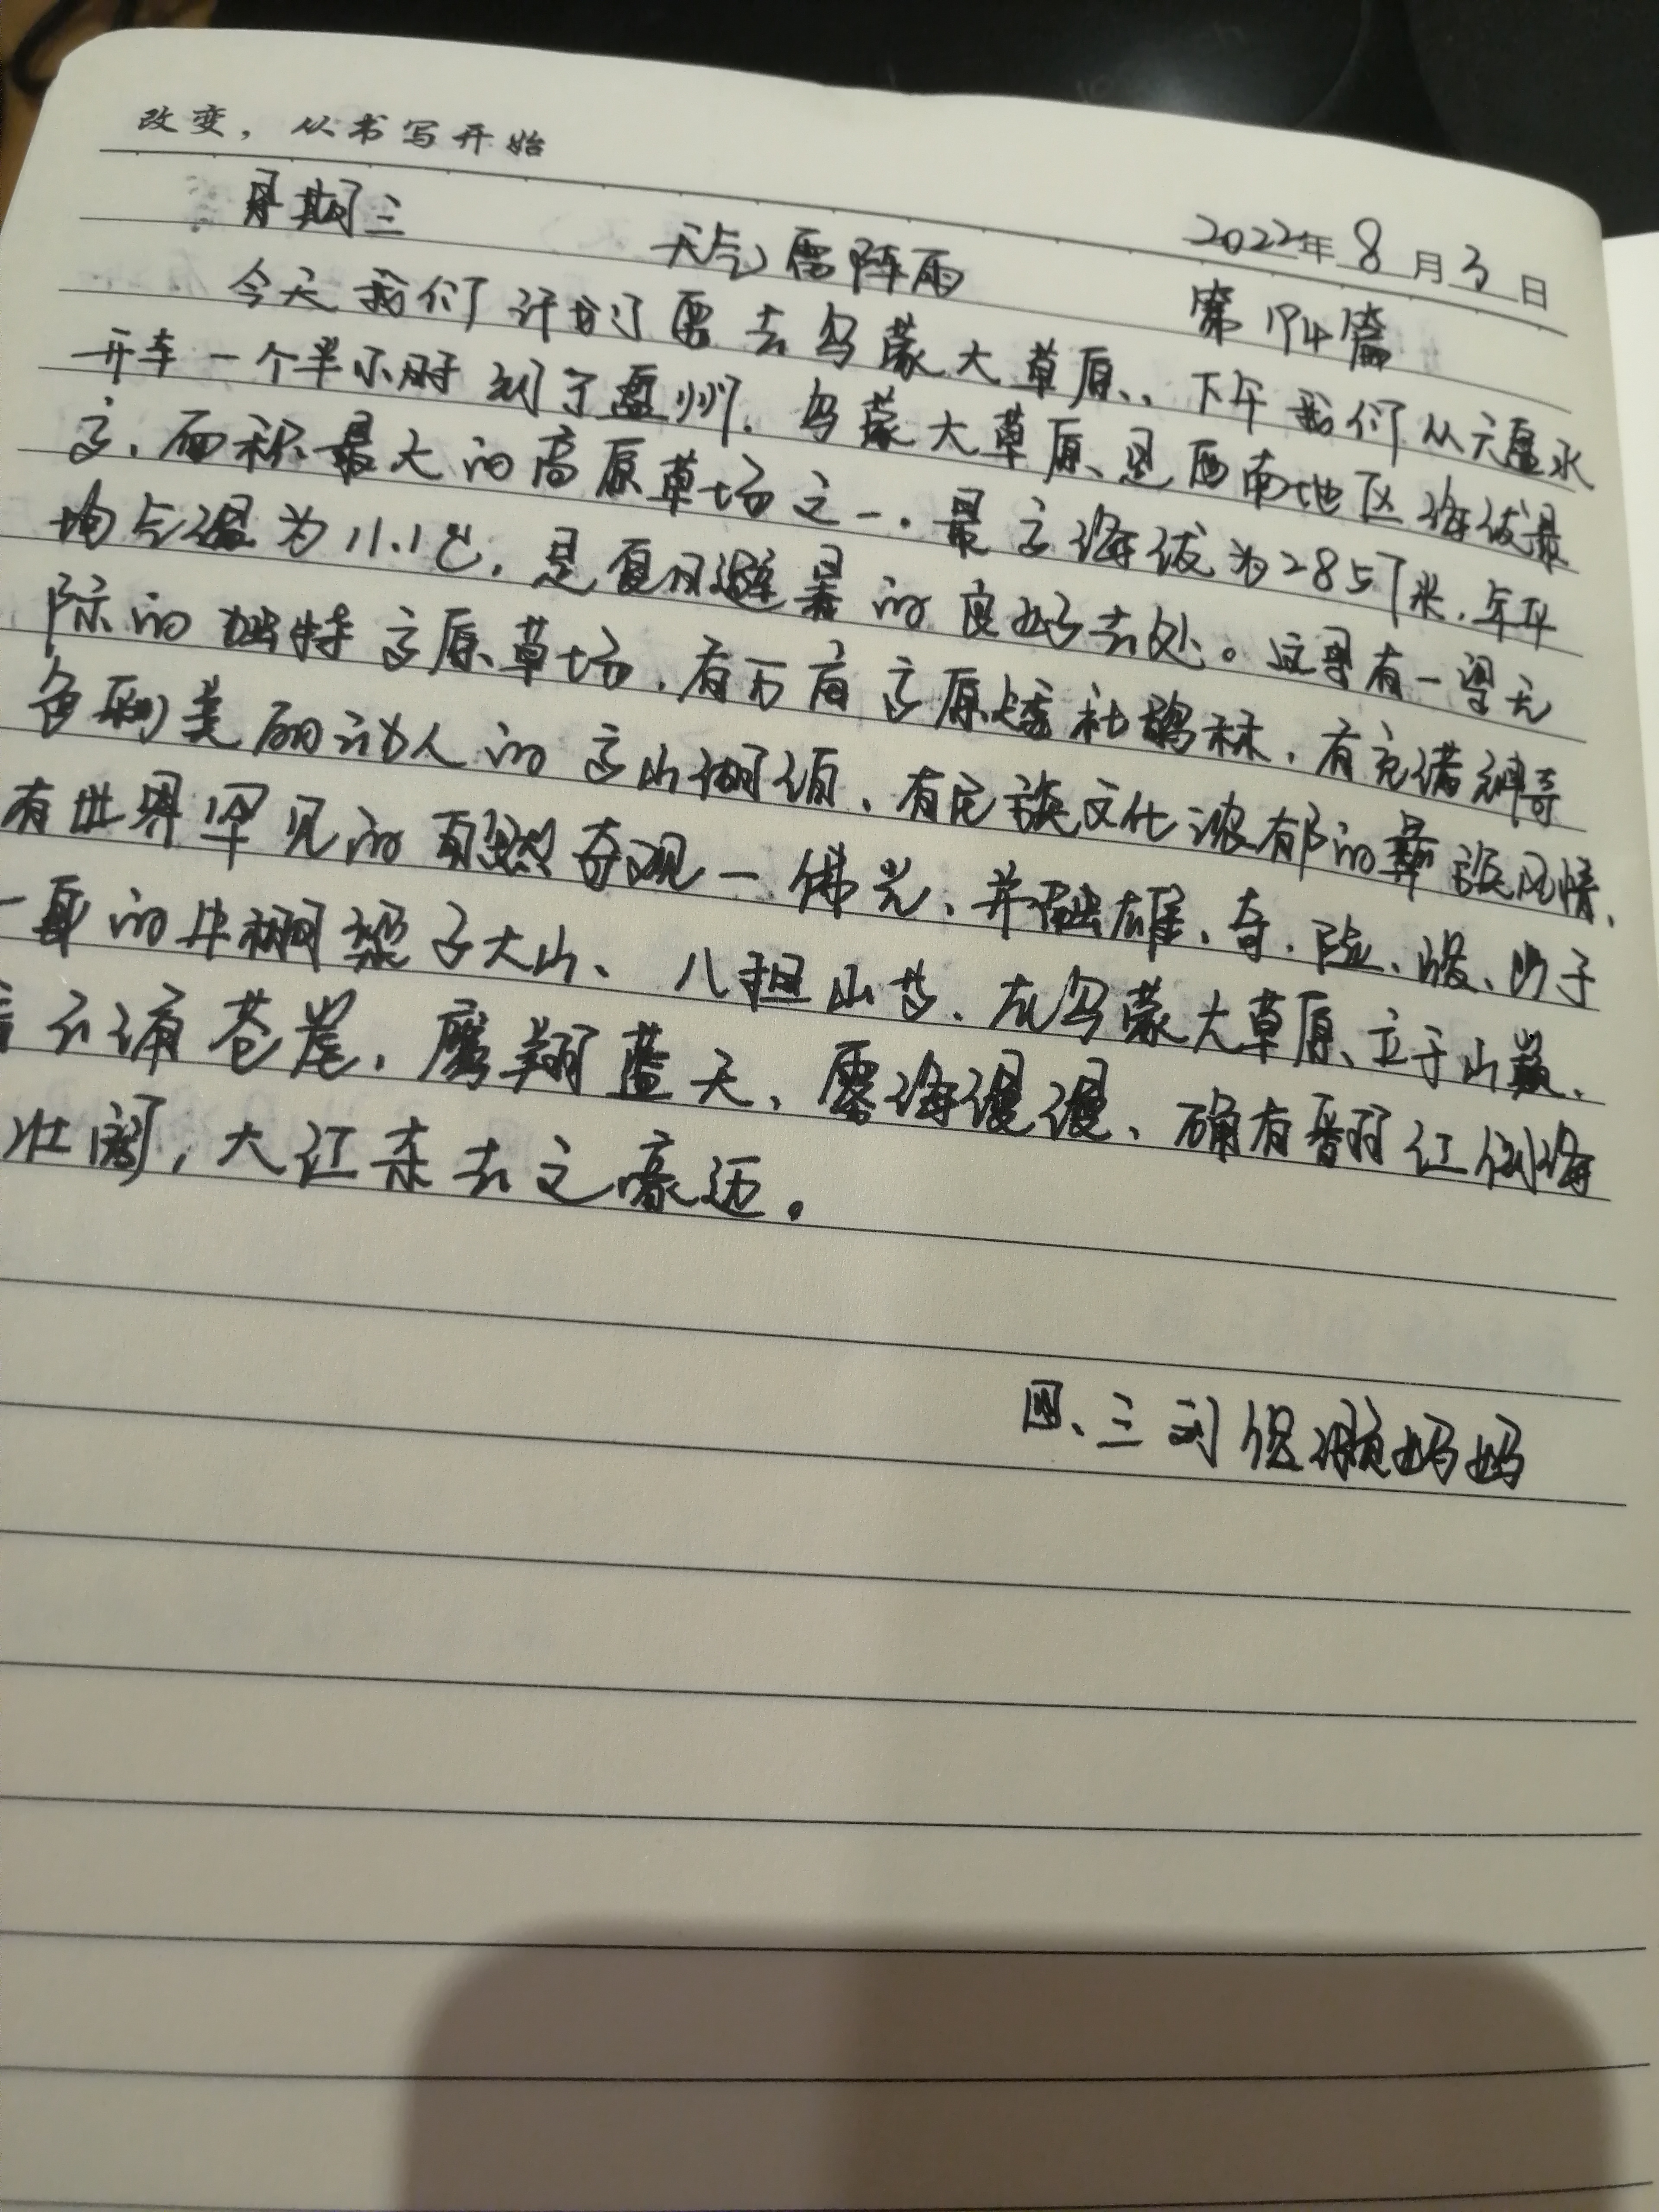 改变，从书写开始
2022年8月3日
星期三 天气雷阵雨 第194篇
今天我们计划要去乌蒙大草原、下午我们从六盘水
开车一个半小时到了盘州.乌蒙大草原、是西南地区海拔最
高.面积最大的高原草场之一.最高海拔为2857米.年平
均气温为11.1℃.是夏日避暑的良好去处。这里有一望无
际的独特高原草场.有万亩高原矮杜鹃林.有充满神奇
色彩美丽动人的高山湖泊、有民族文化浓郁的彝族风情、
有世界罕见的自然奇观一佛光、并融雄、奇、险、峻、巧于
一身的牛棚梁子大山、八担山 .在乌蒙大草原、立于山巅、
云涌苍崖.鹰翔蓝天、雾海漫漫、确有翻江倒海
壮阔,大江东去之豪迈。
四、三刘 妈妈